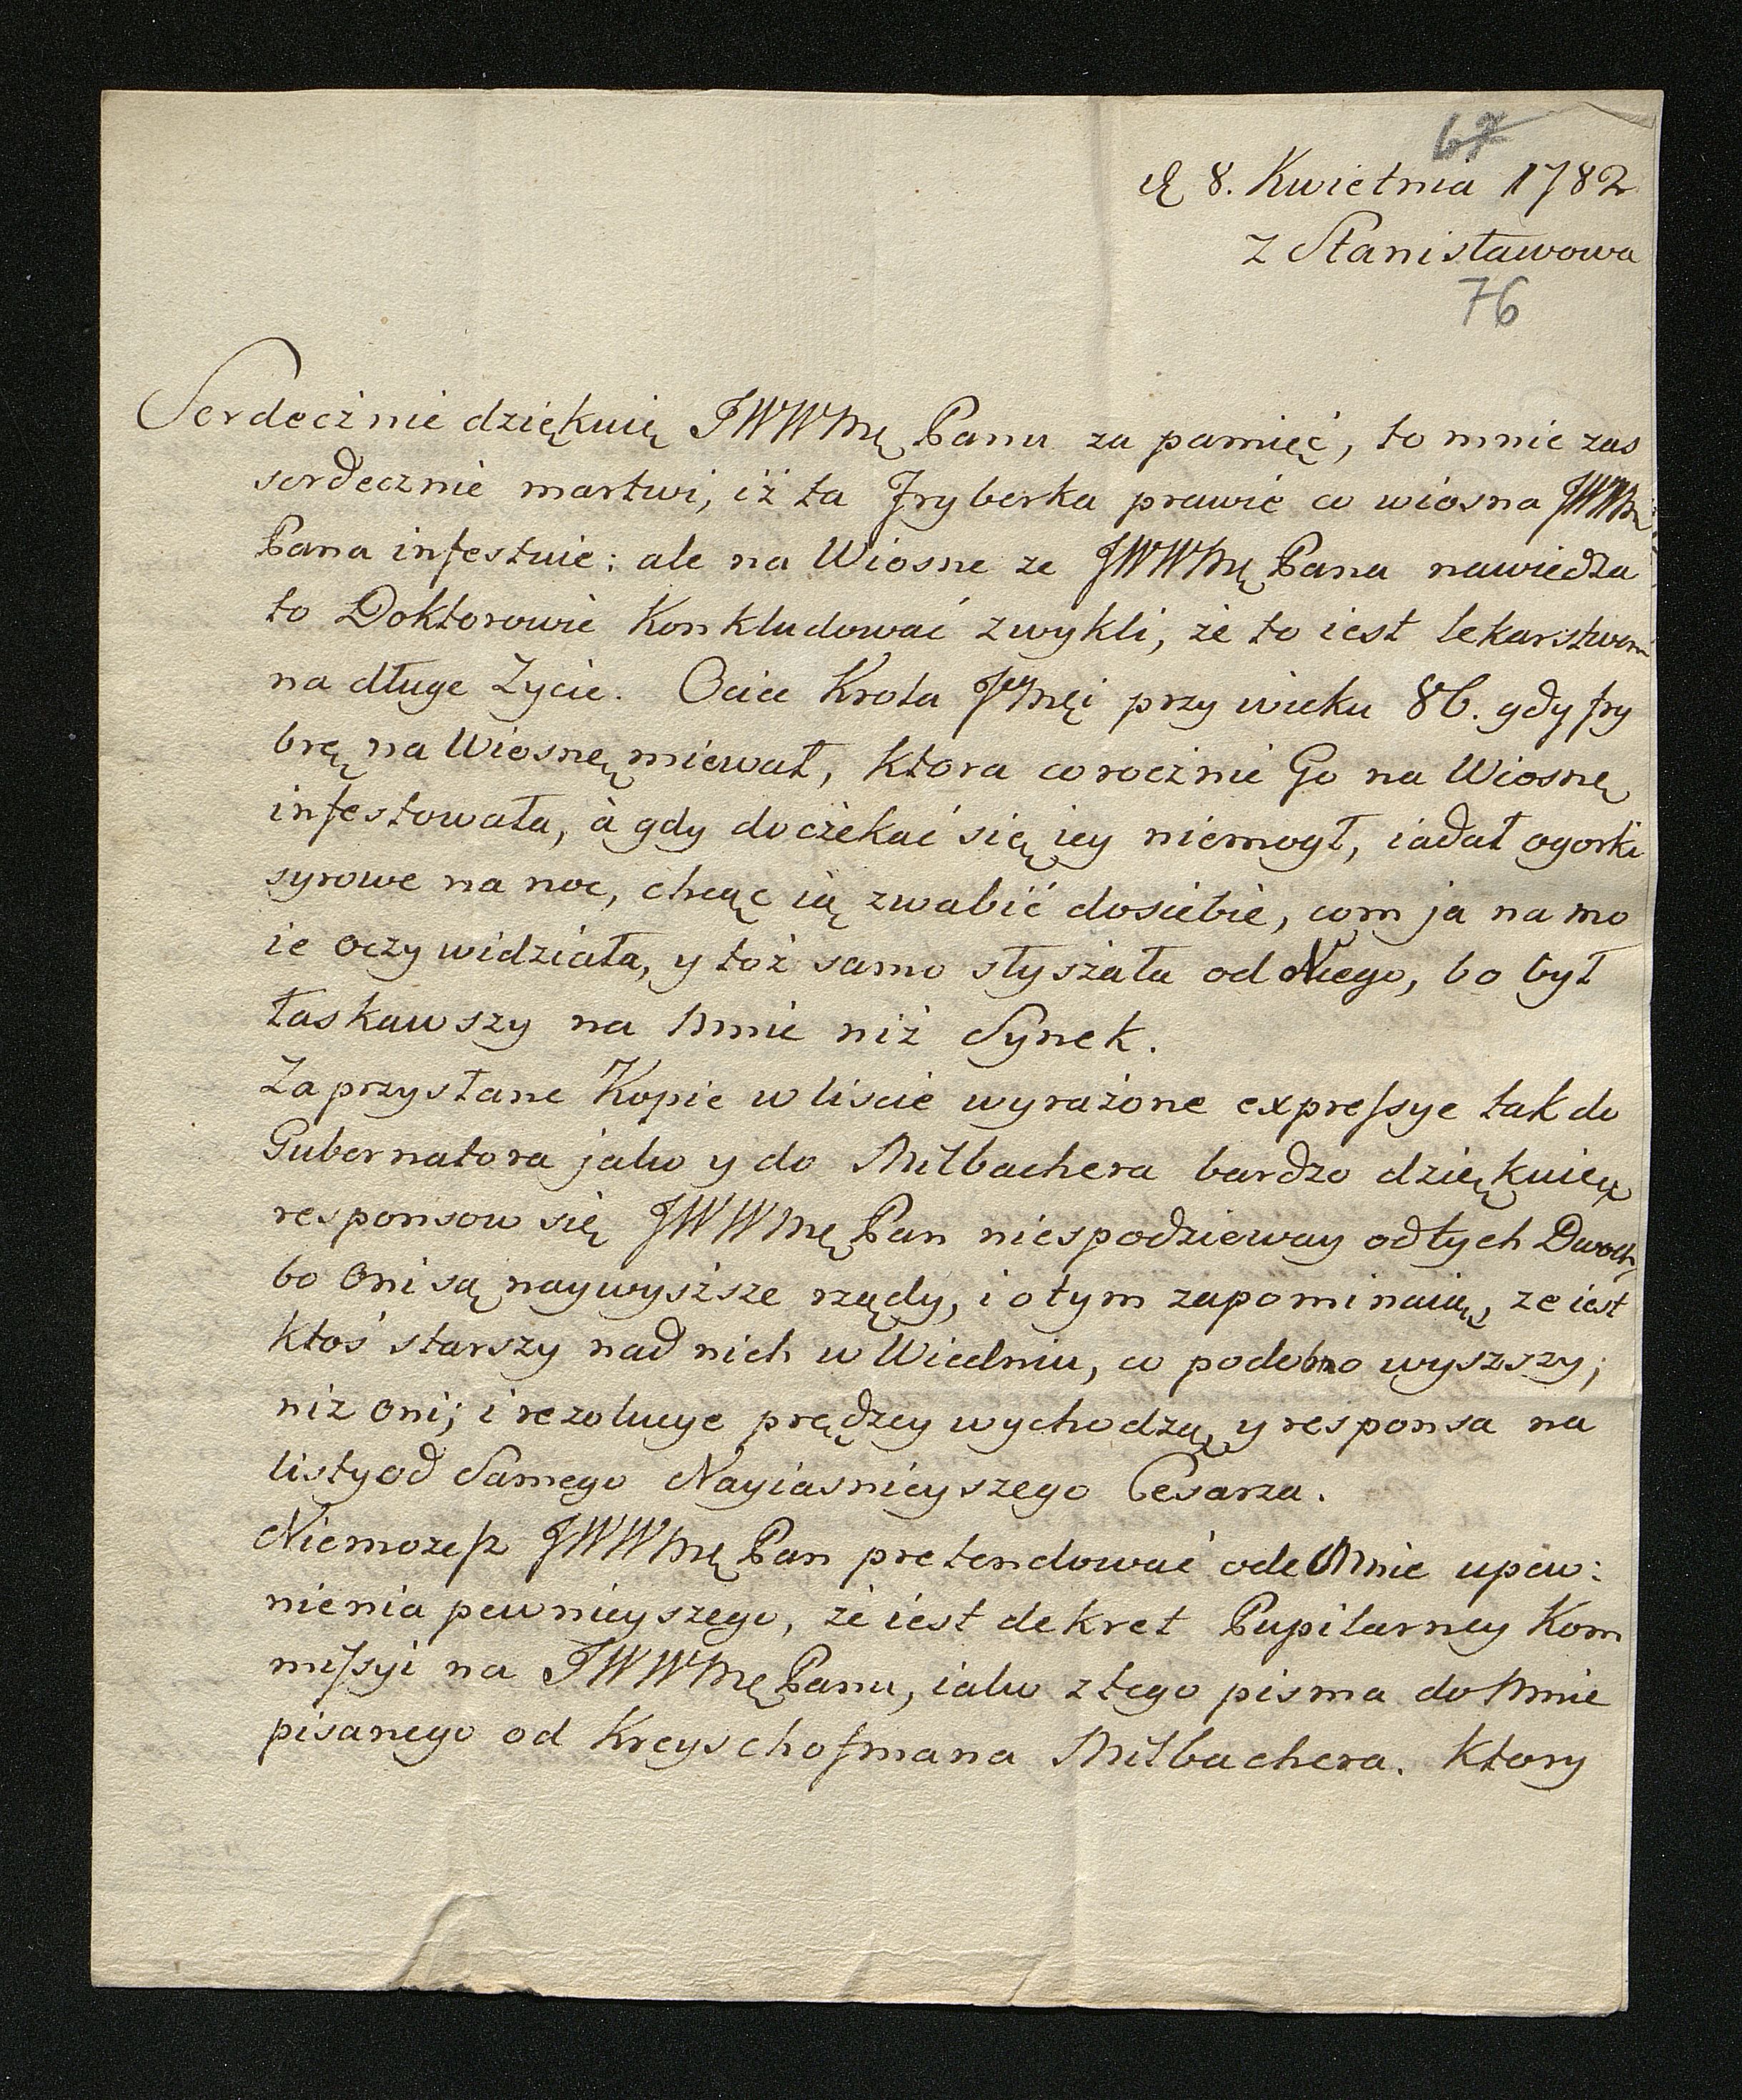 67
d 8. Kwietnia 1782
z Stanisławowa
76
Serdecźnie dziękuię JWWMę Panu za pamięć, to mnie zas
serdecznie martwi, iż ta Fryberka prawie co wiosna JWWM
Pana infestuie: ale na Wiosne ze JWWMę Pana nawiedza
to Doktorowie Konkludować zwykli, że to iest lekarstwem
na długe Zycie. Ociec Krola JMęi przy wieku 86. gdy fry
brę na Wiosnę miewał, Ktora corocźnie Go na Wiosnę
infestowała, à gdy docżekać się iey niemogł, iadał ogorki
syrowe na noc, chcąc ią zwabić dosiebie, com ja na mo
ie oczy widziała, y toż samo słyszała od Niego, bo był
łaskawszy na Mnie niż Synek.
Za przysłane Kopie w liscie wyrażone expressye tak do
Gubernatora jako y do Milbachera bardzo dziękuię
responsow się JWWMę Pan niespodzieway od tych Dwoch,
bo Oni są naywyższe rządy, i o tym zapominaią, ze iest
Ktoś starszy nad nich w Wiedniu, co podobno wyszszy,
niż oni; i rezolucye prędzey wychodzą, y responsa na
listy od Samego Nayiasnieyszego Cesarza.
Niemożesz JWWMę Pan pretendować ode Mnie upew:
nienia pewnieyszego, że iest dekret Pupilarney Kom
missyi na JWWMę Panu, iako z tego pisma do Mnie
pisanego od Kreyschofmana Milbachera. Ktory